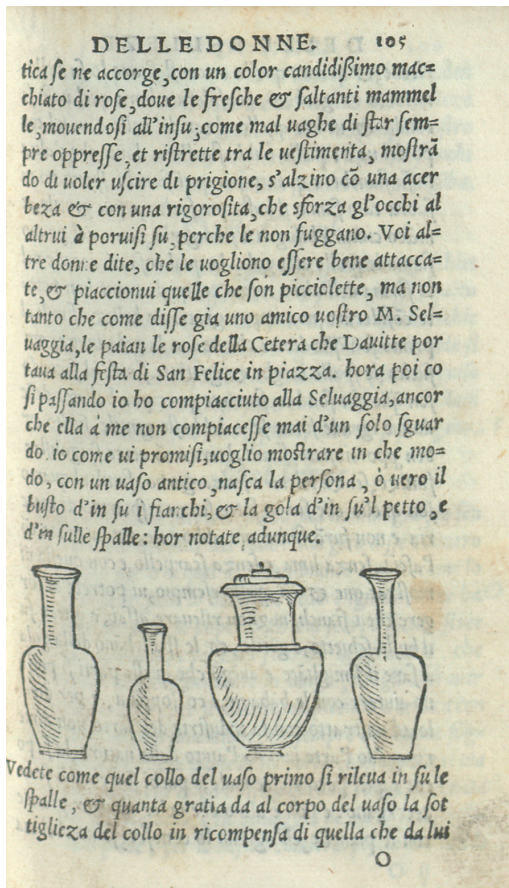 DELLE DONNE. 105
tica se ne accorge, con un color candidißimo mac=
chiato di rose, dove le fresche & saltanti mammel
le, movendosi all'insu, come mal vaghe di star sem=
pre oppresse, et ristrette tra le vestimenta, mostrā
do di voler uscire di prigione, s'alzino cõ una acer
beza & con una rigorosita, che sforza gl'occhi al
altrui à porvisi su, perche le non fuggano. Voi al=
tre donne dite, che le vogliono essere bene attacca=
te, & piaccionvi quelle che son picciolette, ma non
tanto che come disse gia uno amico vostro M. Sel=
vaggia, le paian le rose della Cetera che Davitte por
tava alla festa di San Felice in piazza. hora poi co
si passando io ho compiacciuto alla Selvaggia, ancor
che ella à me non compiacesse mai d'un solo sguar
do. io come vi promisi, voglio mostrare in che mo=
do, con un vaso antico, nasca la persona, ò vero il
busto d'in su i fianchi, & la gola d'in su'l petto, e
d'in sulle spalle: hor notate adunque.
Vedete come quel collo del vaso primo si rileva in su le
spalle, & quanta gratia da al corpo del vaso la sot
tigliezza del collo in ricompensa di quella che da lui
O